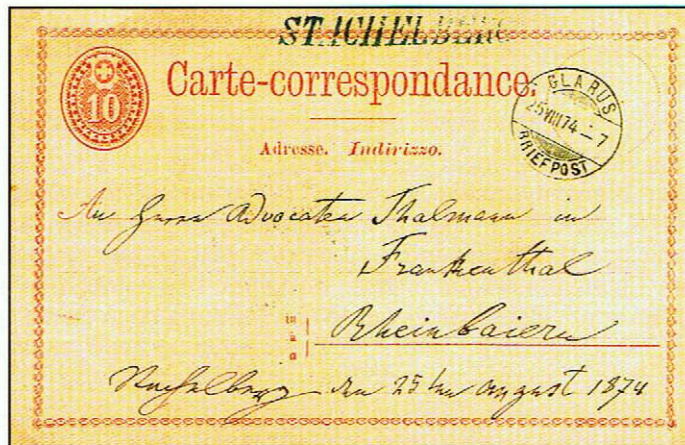 STACHELBERG
Carte-correspondance.
10
GLARUS
25 VIII 74 – 7
BRIEFPOST
Adresse. Indirizzo.
An Herrn Advocaten Thalmann in
Frankenthal
in
à
a
Rheinbaiern
Stachelberg den 25ten august 1874